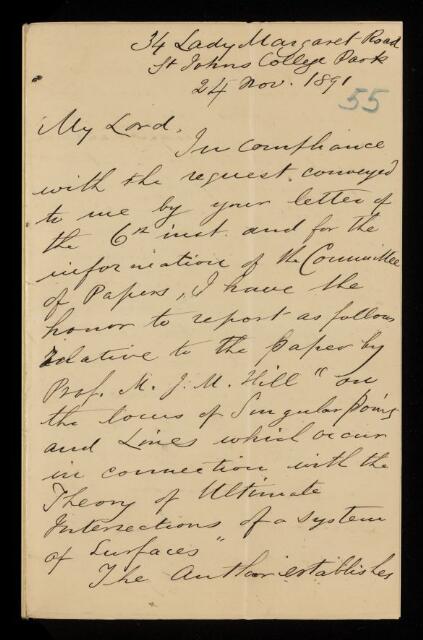 34 Lady Margaret Road
St Johns College Park
24 Nov. 1891
55
My Lord,
In compliance
with the request conveyed
to me by your letter of
the 6th inst. and for the
information of the Committee
of Papers, I have the
honor to report as follows
relative to the paper by
Prof. M. J. M. Hill "on
the locus of Singular Points
and Lines which occur
in connection with the
Theory of Ultimate
Intersections of a system
of Surfaces"
The Author establishes